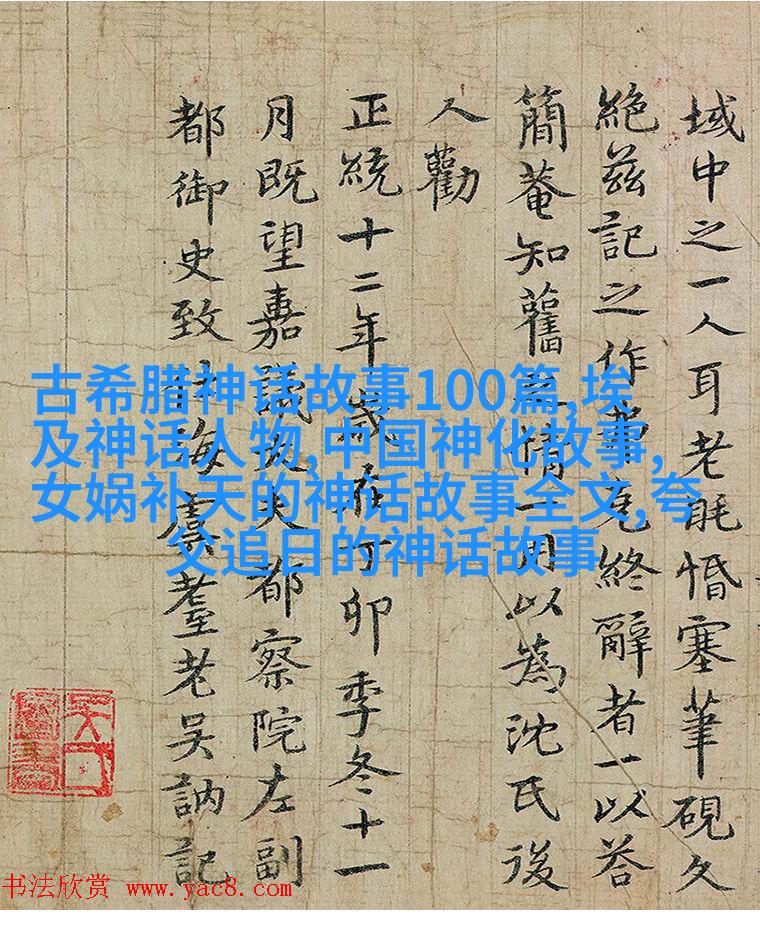 域中之一人耳老眊惛塞筆硯久
絶兹記之作克終辭者一以荅
簡菴知舊之情一用以為沈氏後
人勸
正統十二年歲在丁卯季冬十一
月既望嘉議大夫都察院左副
都御史致仕海虞耋老吳訥記
古希腊神话故事100篇,埃
及神话人物,中国神化故事,
女娲补天的神话故事全文,夸
父追日的神话故事
书法欣赏 www.yac8.com